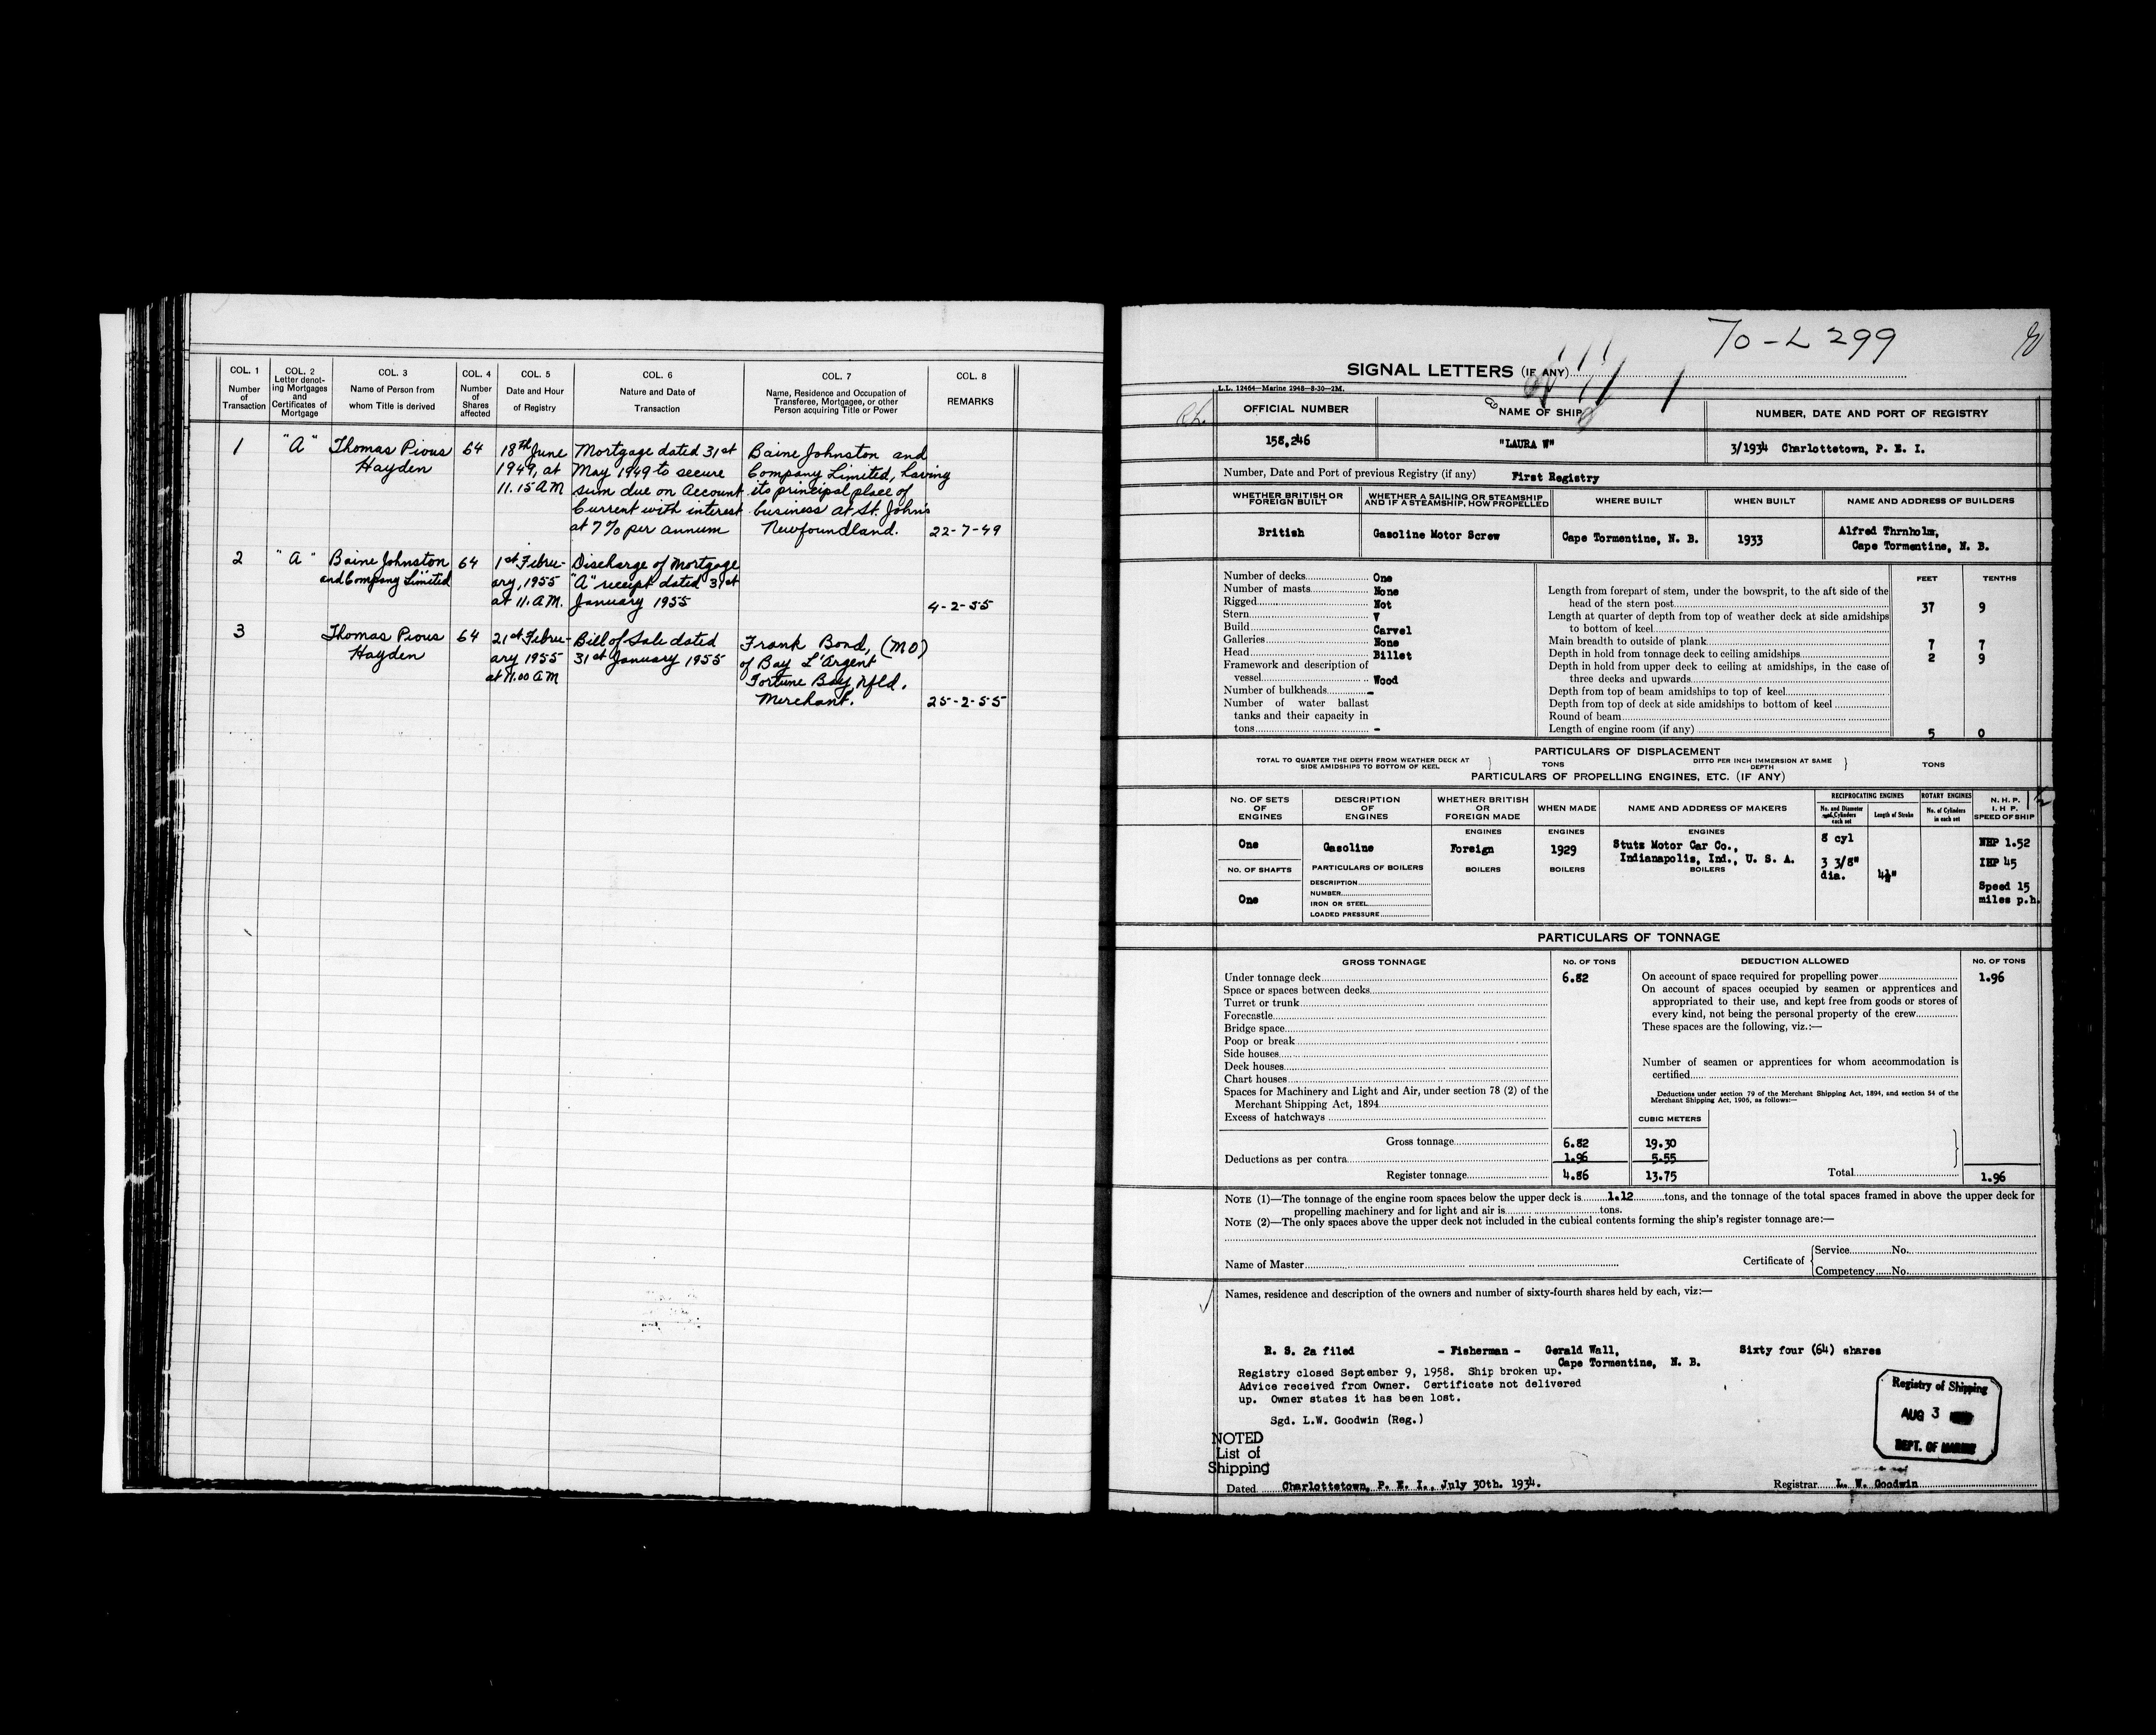 COL. 1
Number
of
Transaction
COL. 2
Letter denot-
ing Mortgages
and
Certificates of
Mortgage
COL. 3
Name of Person from
whom Title is derived
COL. 4
Number
of
Shares
affected
COL. 5
Date and Hour
of Registry
COL. 6
Nature and Date of
Transaction
COL. 7
Name, Residence and Occupation of
Transferee, Mortgagee, or other
Person acquiring Title or Power
COL. 8
REMARKS
1 "A" Thomas Pious 64 18th June Mortgage dated 31st Baine Johnston and
Hayden 1949, at May 1949 to secure Company Limited, having
11.15 AM sum due on Account its principal place of
Current with interest business at St. John's
at 7% per annum Newfoundland. 22-7-49
2 "A" Baine Johnston 64 1st Febru- Discharge of Mortgage
and Company Limited ary, 1955 "A" receipt dated 31st
at 11. A.M. January 1955 4-2-55
3 Thomas Pious 64 21st Febru- Bill of Sale dated Frank Bond, (MO)
Hayden ary 1955 31st January 1955 of Bay L'Argent
at 11.00 AM Fortune Bay, Nfld.
Merchant. 25-2-55
70-L299
SIGNAL LETTERS (IF ANY)
L.L. 12464—Marine 2948—8-30—2M.
OFFICIAL NUMBER NAME OF SHIP NUMBER, DATE AND PORT OF REGISTRY
158,246 "LAURA W" 3/1934 Charlottetown, P. E. I.
Number, Date and Port of previous Registry (if any) First Registry
WHETHER BRITISH OR
FOREIGN BUILT
WHETHER A SAILING OR STEAMSHIP
AND IF A STEAMSHIP, HOW PROPELLED
WHERE BUILT
WHEN BUILT
NAME AND ADDRESS OF BUILDERS
British Gasoline Motor Screw Cape Tormentine, N. B. 1933 Alfred Thrnholm,
Cape Tormentine, N. B.
Number of decks One
Number of masts None
Rigged Not
Stern V
Build Carvel
Galleries None
Head Billet
Framework and description of
vessel Wood
Number of bulkheads -
Number of water ballast
tanks and their capacity in
tons -
FEET TENTHS
Length from forepart of stem, under the bowsprit, to the aft side of the
head of the stern post 37 9
Length at quarter of depth from top of weather deck at side amidships
to bottom of keel
Main breadth to outside of plank 7 7
Depth in hold from tonnage deck to ceiling amidships 2 9
Depth in hold from upper deck to ceiling at amidships, in the case of
three decks and upwards
Depth from top of beam amidships to top of keel
Depth from top of deck at side amidships to bottom of keel
Round of beam
Length of engine room (if any) 5 0
PARTICULARS OF DISPLACEMENT
TOTAL TO QUARTER THE DEPTH FROM WEATHER DECK AT
SIDE AMIDSHIPS TO BOTTOM OF KEEL
TONS
DITTO PER INCH IMMERSION AT SAME
DEPTH
TONS
PARTICULARS OF PROPELLING ENGINES, ETC. (IF ANY)
No. OF SETS
OF
ENGINES
DESCRIPTION
OF
ENGINES
WHETHER BRITISH
OR
FOREIGN MADE
WHEN MADE
NAME AND ADDRESS OF MAKERS
RECIPROCATING ENGINES
No. and Diameter
of Cylinders
each set
Length of Stroke
ROTARY ENGINES
No. of Cylinders
in each set
N. H. P.
I. H. P.
SPEED OF SHIP
ENGINES ENGINES ENGINES
One Gasoline Foreign 1929 Stutz Motor Car Co.,
Indianapolis, Ind., U. S. A.
8 cyl
3 3/8"
dia.
4½"
NHP 1.52
IHP 45
Speed 15
miles p.h.
No. OF SHAFTS PARTICULARS OF BOILERS BOILERS BOILERS BOILERS
One
DESCRIPTION
NUMBER
IRON OR STEEL
LOADED PRESSURE
PARTICULARS OF TONNAGE
GROSS TONNAGE No. OF TONS DEDUCTION ALLOWED No. OF TONS
Under tonnage deck 6.82
Space or spaces between decks
Turret or trunk
Forecastle
Bridge space
Poop or break
Side houses
Deck houses
Chart houses
Spaces for Machinery and Light and Air, under section 78 (2) of the
Merchant Shipping Act, 1894
Excess of hatchways
On account of space required for propelling power 1.96
On account of spaces occupied by seamen or apprentices and
appropriated to their use, and kept free from goods or stores of
every kind, not being the personal property of the crew
These spaces are the following, viz.:—
Number of seamen or apprentices for whom accommodation is
certified
Deductions under section 79 of the Merchant Shipping Act, 1894, and section 54 of the
Merchant Shipping Act, 1906, as follows:—
CUBIC METERS
Gross tonnage 6.82 19.30
Deductions as per contra 1.96 5.55
Register tonnage 4.86 13.75
Total 1.96
NOTE (1)—The tonnage of the engine room spaces below the upper deck is 1.12 tons, and the tonnage of the total spaces framed in above the upper deck for
propelling machinery and for light and air is tons.
NOTE (2)—The only spaces above the upper deck not included in the cubical contents forming the ship's register tonnage are:—
Name of Master
Certificate of
Service No.
Competency No.
Names, residence and description of the owners and number of sixty-fourth shares held by each, viz:—
R. S. 2a filed - Fisherman - Gerald Wall, Sixty four (64) shares
Cape Tormentine, N. B.
Registry closed September 9, 1958. Ship broken up.
Advice received from Owner. Certificate not delivered
up. Owner states it has been lost.
Sgd. L.W. Goodwin (Reg.)
Registry of Shipping
AUG 3
DEPT. OF MARINE
NOTED
List of
Shipping
Dated Charlottetown, P. E. I., July 30th. 1934.
Registrar L. W. Goodwin